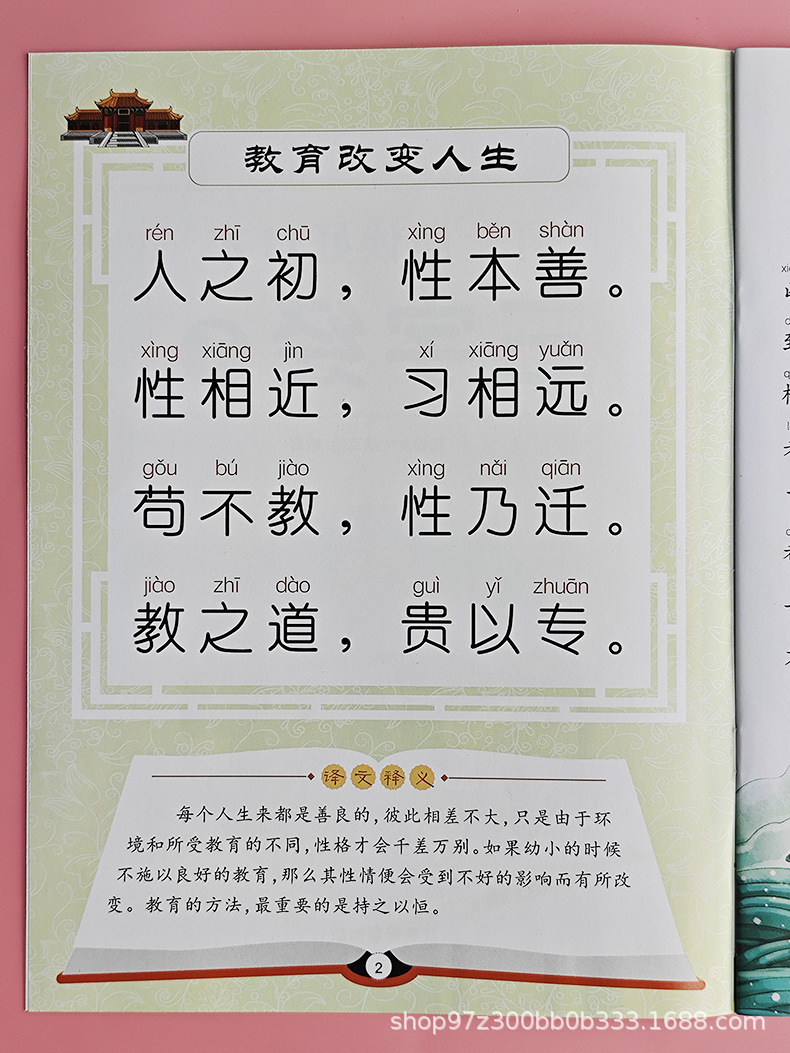 教育改变人生
rén zhī chū xìng běn shàn
人之初，性本善。
xìng xiāng jìn xí xiāng yuǎn
性相近，习相远。
gǒu bú jiào xìng nǎi qiān
苟不教，性乃迁。
jiào zhī dào guì yǐ zhuān
教之道，贵以专。
译文释义
每个人生来都是善良的，彼此相差不大，只是由于环
境和所受教育的不同，性格才会千差万别。如果幼小的时候
不施以良好的教育，那么其性情便会受到不好的影响而有所改
变。教育的方法，最重要的是持之以恒。
2
shop97z300bb0b333.1688.com